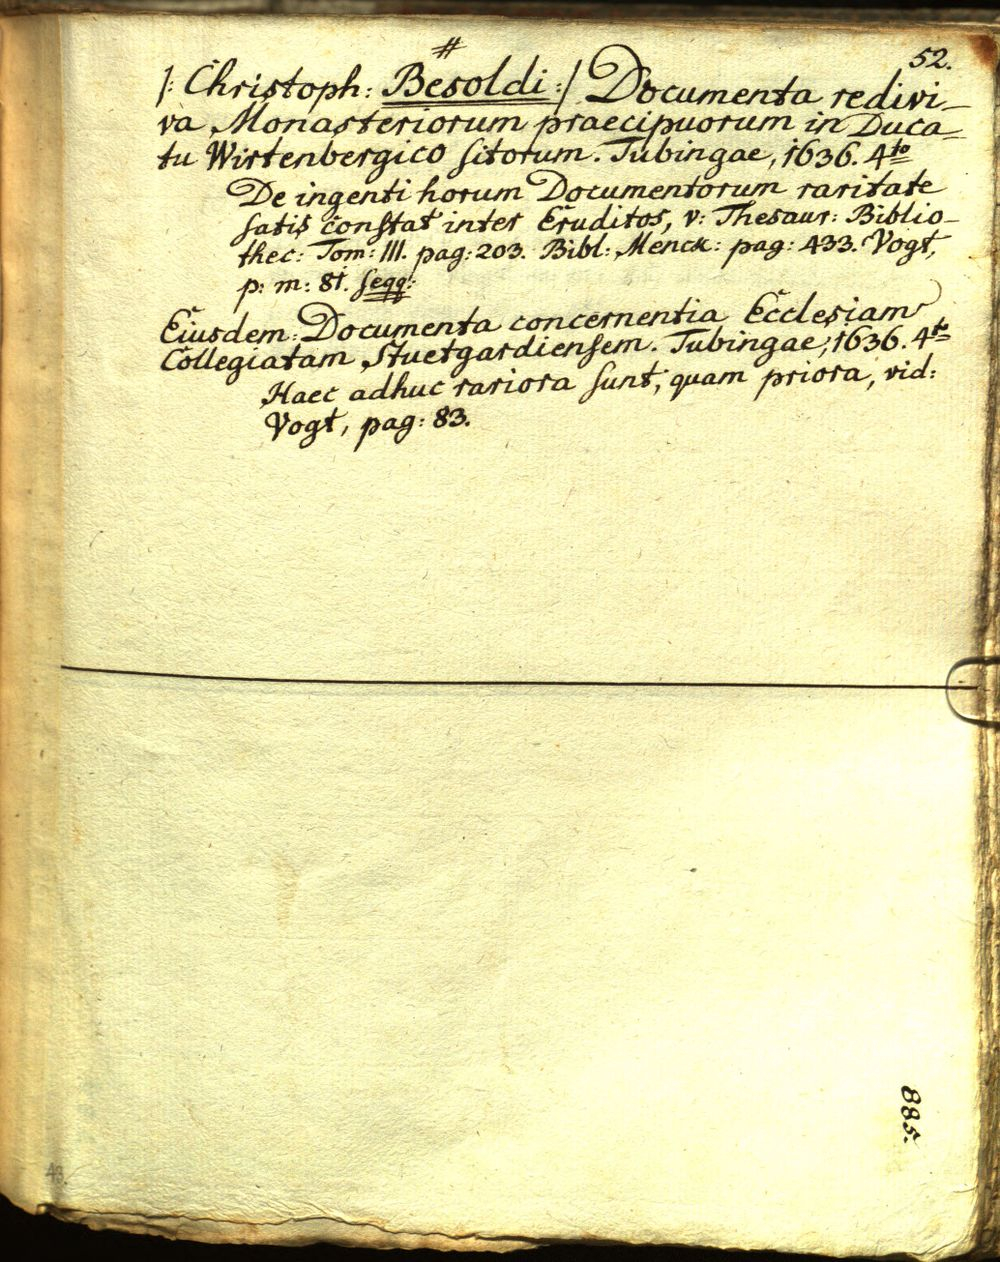 #
52.
/: Christoph: Besoldi :/ Documenta redivi-
va Monasteriorum praecipuorum in Duca-
tu Wirtenbergico sitorum. Tubingae, 1636. 4to
De ingenti horum Documentorum raritate
satis constat inter Eruditos, v: Thesaur: Biblio-
thec: Tom: III. pag: 203. Bibl: Menck: pag: 433. Vogt,
p: m: 81. seqq:
Eiusdem: Documenta concernentia Ecclesiam
Collegiatam Stuetgardiensem. Tubingae, 1636. 4to
Haec adhuc rariora sunt, quam priora, vid:
Vogt, pag: 83.
885.
43.